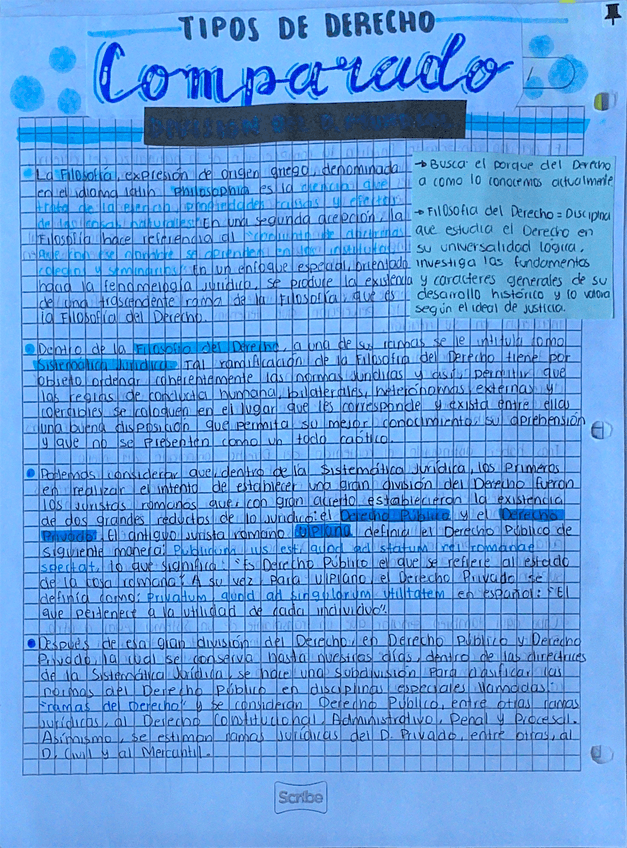 TIPOS DE DERECHO
Comparado
DIVISIÓN
• La Filosofía, expresión de origen griego, denominada
en el idioma latin "Philosophia" es la ciencia que
trata de la esencia, propiedades causas y efectos
de las cosas naturales. En una segunda acepción, la
Filosofía hace referencia al conjunto de doctrinas
que con ese nombre se aprenden en los institutos,
colegios y seminarios. En un enfoque especial, orientado
hacia la fenomelogia jurídica, se produce la existencia
de una trascendente rama de la Filosofía, que es
la Filosofía del Derecho.
→ Busca el porque del Derecho
a como lo conocemos actualmente
→ Filosofia del Derecho = Disciplina
que estudia el Derecho en
su universalidad lógica,
investiga los fundamentos
y caracteres generales de su
desarrollo histórico y lo valora
según el ideal de justicia.
• Dentro de la Filosofía del Derecho, a una de sus ramas se le intitula como
Sistemática Jurídica. Tal ramificación de la Filosofía del Derecho tiene por
objeto ordenar coherentemente las normas jurídicas y así, permitir que
las reglas de conducta humana, bilaterales, heterónomas, externas y
coercibles se coloquen en el lugar que les corresponde y exista entre ellas
una buena disposición que permita su mejor conocimiento, su aprehensión
y que no se presenten como un todo caótico.
• Podemos considerar que, dentro de la Sistemática Jurídica, los primeros
en realizar el intento de establecer una gran división del Derecho fueron
los juristas romanos que, con gran acierto establecieron la existencia
de dos grandes reductos de lo jurídico: el Derecho Público y el Derecho
Privado. El antiguo jurista romano Ulpiano definía el Derecho Público de
siguiente manera: Publicum ius est, quod ad statum rei romanae
spectat, lo que significa: "Es Derecho Público el que se refiere al estado
de la cosa romana". A su vez para Ulpiano, el Derecho Privado se
definía como: Privatum, quod ad singulorum utilitatem en español: "El
que pertenece a la utilidad de cada individuo".
• Después de esa gran división del Derecho, en Derecho Público y Derecho
Privado, la cual se conserva hasta nuestros días, dentro de las directrices
de la Sistemática Jurídica, se hace una subdivisión para clasificar las
normas del Derecho Público en disciplinas especiales llamadas:
"ramas del Derecho" y se consideran Derecho Público, entre otras ramas
jurídicas, al Derecho Constitucional, Administrativo, Penal y Procesal.
Asimismo, se estiman ramas jurídicas del D. Privado, entre otras, al
D. Civil y al Mercantil.
Scribe